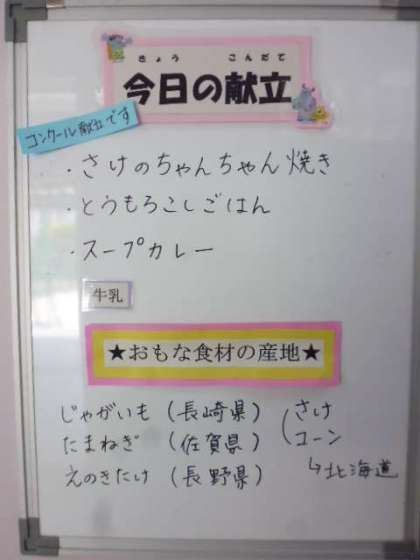 きょう こんだて
今日の献立
コンクール献立です
・さけのちゃんちゃん焼き
・とうもろこしごはん
・スープカレー
牛乳
★おもな食材の産地★
じゃがいも（長崎県）
たまねぎ（佐賀県）
えのきたけ（長野県）
さけ
コーン
↳北海道